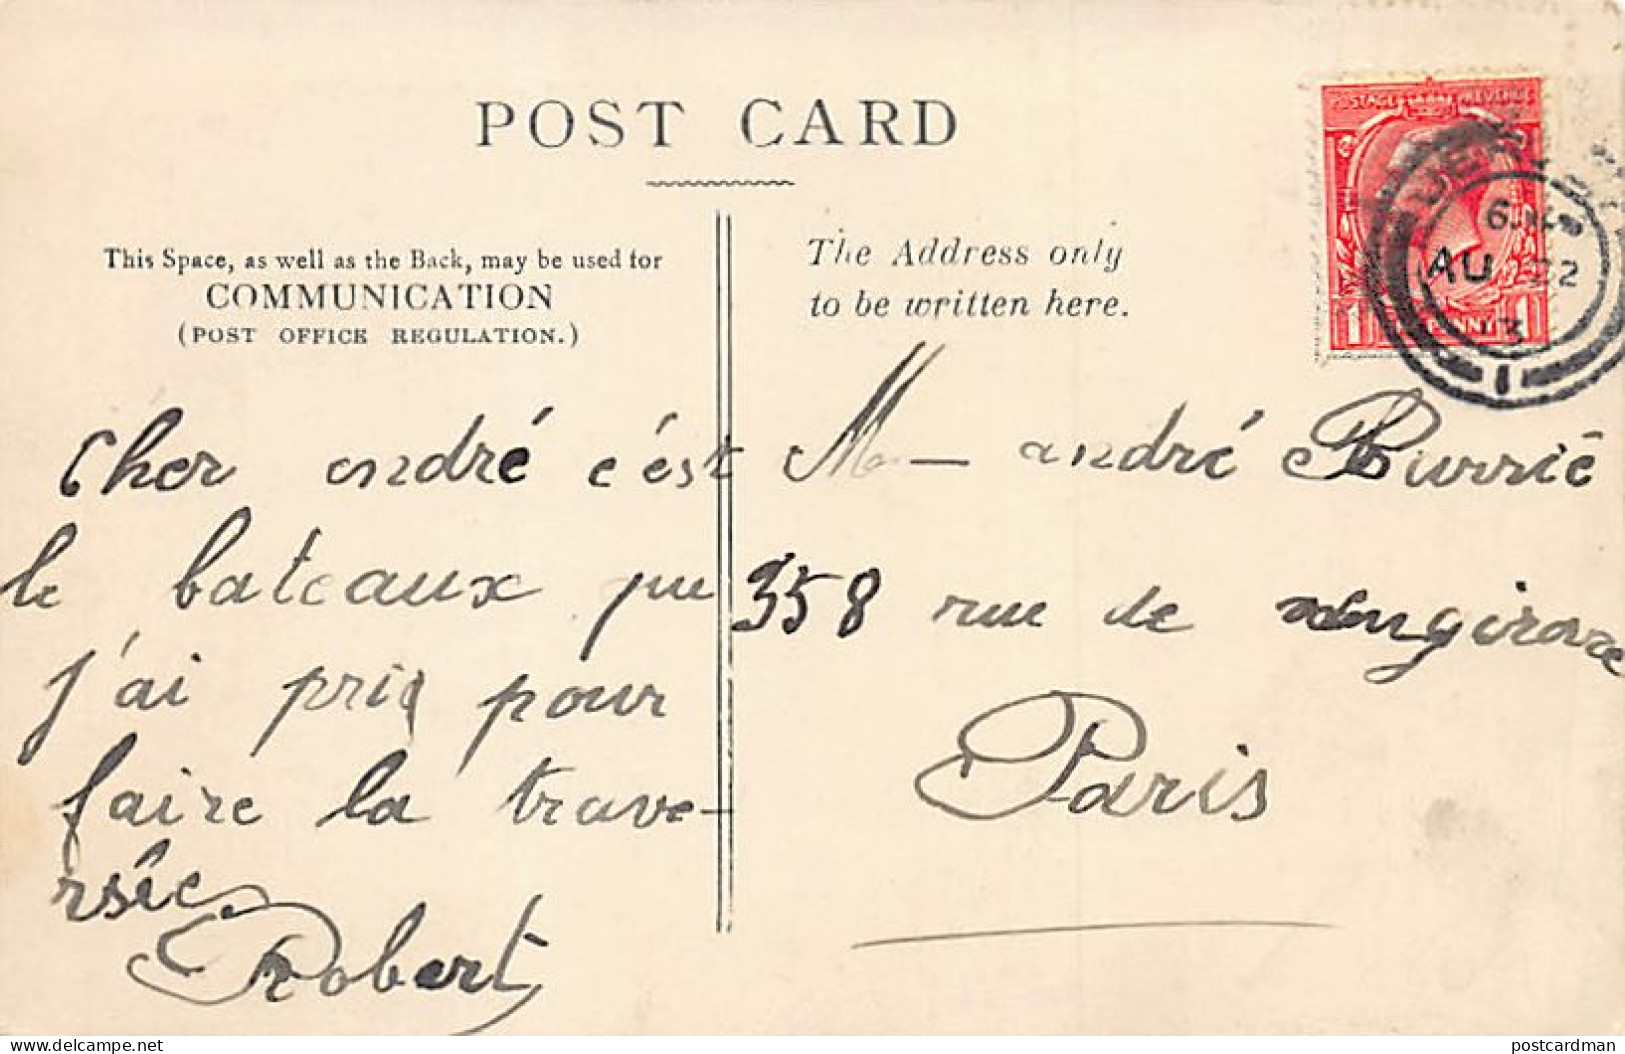 POST CARD
This Space, as well as the Back, may be used for
COMMUNICATION
(POST OFFICE REGULATION.)
The Address only
to be written here.
POSTAGE REVENUE
6
AU 22
13
1
1 PENNY 1
Cher andré c'ést
le bateaux que
j'ai pris pour
faire la trave-
rsée
Robert
andré
358 rue de
Paris
delcampe.net
postcardman